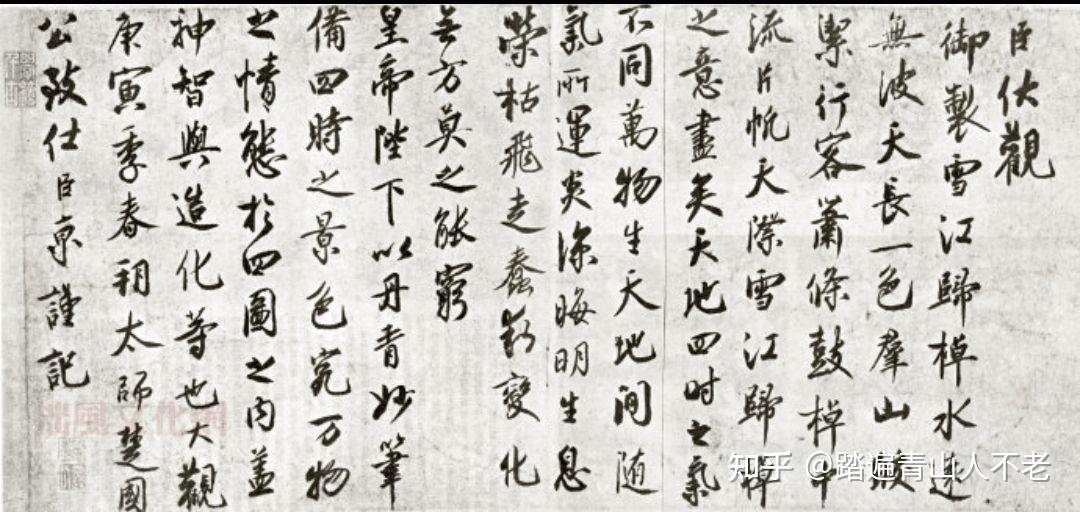 臣伏觀
御製雪江歸棹水遠
無波天長一色羣山皎
潔行客蕭條鼓棹中
流片帆天際雪江歸棹
之意盡矣天地四时之氣
不同萬物生天地間随
氣所運炎涼晦明生息
榮枯飛走蠢動變化
無方莫之能窮
皇帝陛下以丹青妙筆
備四時之景色究万物
之情態於四圖之内盖
神智與造化等也大觀
庚寅季春朔太師楚國
公致仕臣京謹記
知乎 @踏遍青山人不老